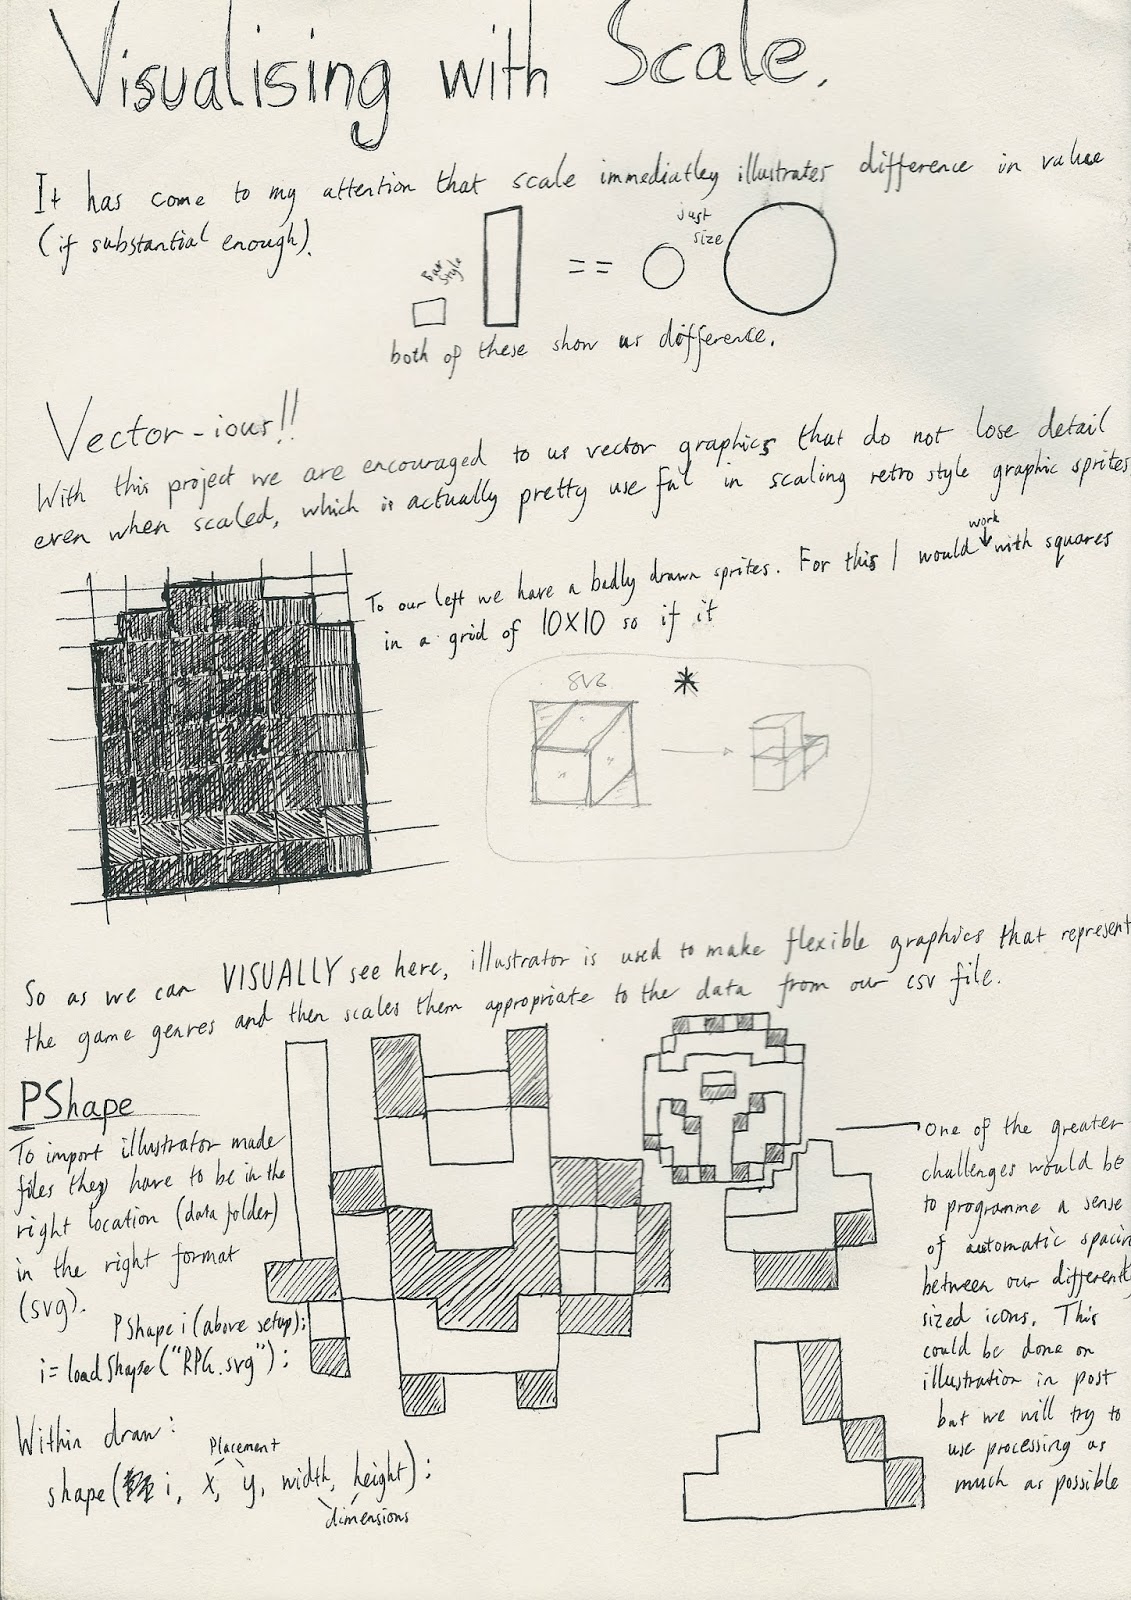 Visualising with Scale.
It has come to my attention that scale immediatley illustrates difference in value
(if substantial enough).
Bar
style
==
just
size
both of these show us difference.
Vector-ious!!
With this project we are encouraged to us vector graphics that do not lose detail
even when scaled, which is actually pretty useful in scaling retro style graphic sprites
To our left we have a badly drawn sprites. For this I would work with squares
in a grid of 10X10 so if it
*
So as we can VISUALLY see here, illustrator is used to make flexible graphics that represent
the game genres and then scales them appropriate to the data from our csv file.
PShape
To import illustrator made
files they have to be in the
right location (data folder)
in the right format
(svg).
PShape i (above setup);
i = loadShape ("RPG.svg");
Within draw:
Placement
shape( i, x, y, width, height);
dimensions
One of the greater
challenges would be
to programme a sense
of automatic spacin
between our differently
sized icons. This
could be done on
illustration in post
but we will try to
use processing as
much as possible